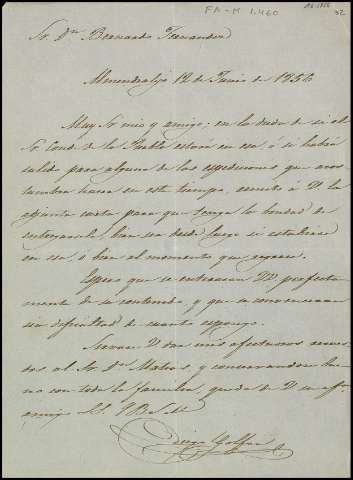 FA-M 1.460
Sr. Dn. Bernardo Fernandez
Almendralejo 12 de Junio de 1856
Muy Sr mio y amigo; en la duda de si el
Sr. Conde de la Puebla estará en esa, ó si habrá
salido para alguna de las espediciones que acos
tumbra hacer en este tiempo, remito á V. la
adjunta carta para que tenga la bondad de
entregarsela, bien sea desde luego si estubiese
en esa, ó bien al momento que regrese.
Espero que se enteraran VV perfecta-
mente de su contenido, y que se convenceran
sin dificultad de cuanto espongo.
Sirvase V dar mis afectuosos recuer
dos al Sr. Dn. Mateo, y conservandose bue
no con toda la familia, queda de V. su aft.
amigo S.S. Q.B.S.M.